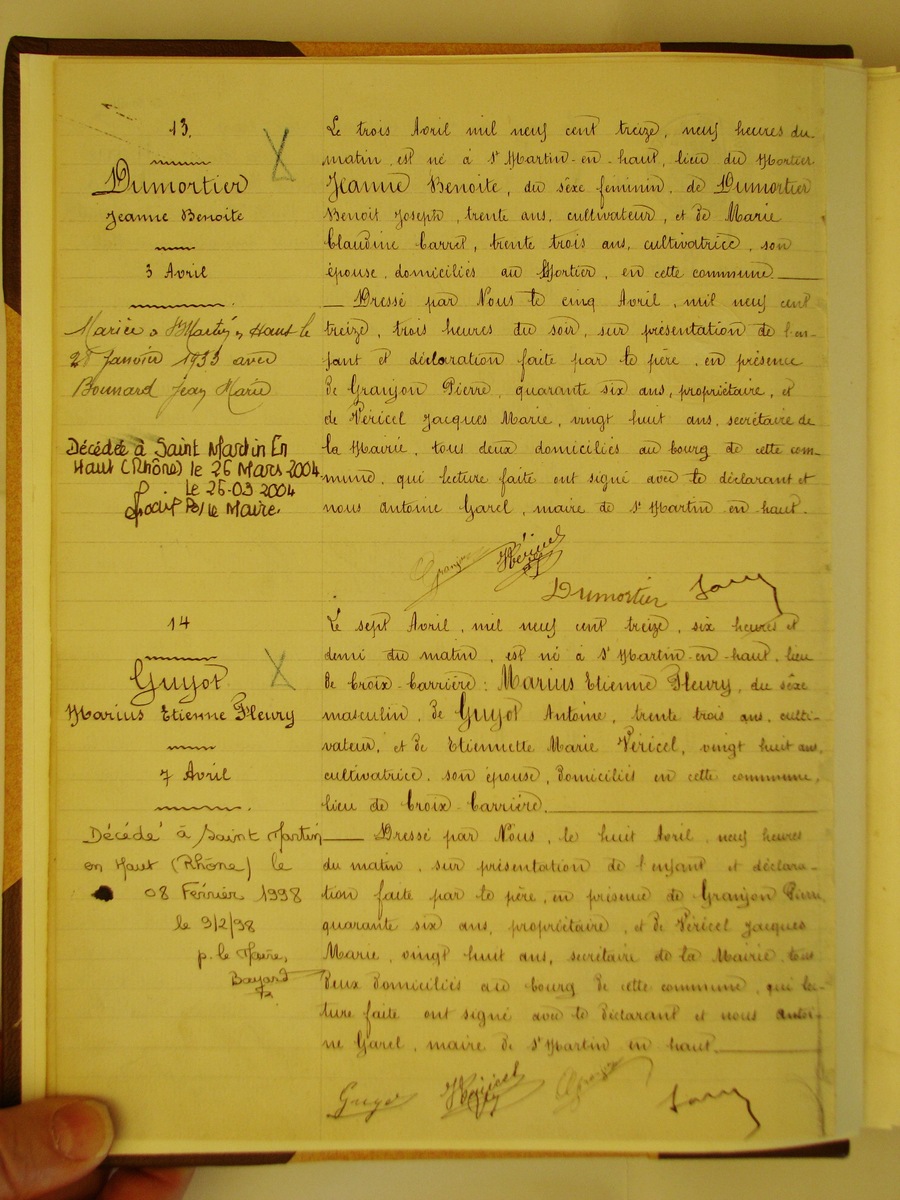 13.
Dumortier
Jeanne Benoite
3 Avril
Mariée à St Martin en Haut le
28 Janvier 1933 avec
Bounard Jean Marie
Décédée à Saint Martin En
Haut (Rhône) le 26 Mars 2004
Le 26-03 2004
Po/ le Maire.
Le trois Avril mil neuf cent treize, neuf heures du
matin, est né à St Martin-en-haut, lieu du Mortier
Jeanne Benoite, du sèxe feminin, de Dumortier
Benoit Joseph, trente ans, cultivateur, et de Marie
Claudine Carret, trente trois ans, cultivatrice, son
épouse, domiciliés au Mortier, en cette commune.
Dressé par Nous le cinq Avril, mil neuf cent
treize, trois heures du soir, sur présentation de l'en-
fant et déclaration faite par le père, en présence
de Granjon Pierre, quarante six ans, propriétaire, et
de Véricel Jacques Marie, vingt huit ans, secrétaire de
la Mairie, tous deux domiciliés au bourg de cette com-
mune, qui lecture faite ont signé avec le déclarant et
nous Antoine Garel, maire de St Martin-en-haut.
Granjon Véricel
Dumortier Garel
14
Guyot
Marius Etienne Fleury
7 Avril
Décédé à Saint Martin
en Haut (Rhône) le
08 Février 1998
le 9/2/98
p. le Maire,
Bayard
Le sept Avril, mil neuf cent treize, six heures et
demi du matin, est né à St Martin-en-haut, lieu
de Croix-Carrière : Marius Etienne Fleury, du sèxe
masculin, de Guyot Antoine, trente trois ans, culti-
vateur, et de Etiennette Marie Véricel, vingt huit ans,
cultivatrice, son épouse, domiciliés en cette commune,
lieu de Croix-Carrière.
Dressé par Nous, le huit Avril, neuf heures
du matin, sur présentation de l'enfant et déclara-
tion faite par le père, en présence de Granjon Pierre,
quarante six ans, propriétaire, et de Véricel Jacques
Marie, vingt huit ans, secrétaire de la Mairie, tous
deux domiciliés au bourg de cette commune, qui lec-
ture faite ont signé avec le déclarant et nous Antoi-
ne Garel, maire de St Martin en haut.
Guyot Véricel Granjon Garel